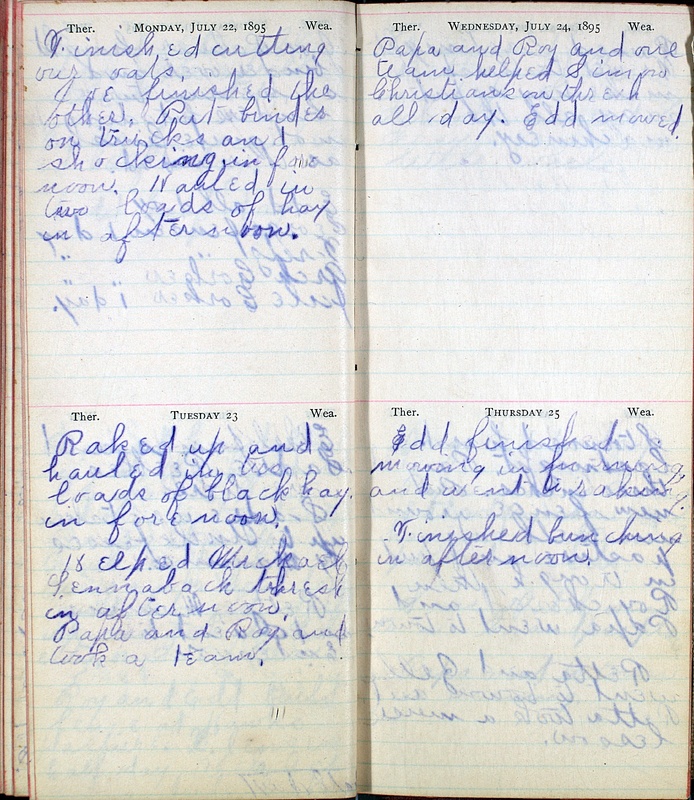 Ther. MONDAY, JULY 22, 1895 Wea.
Finished cutting
our oats.
We finished the
other. Put binder
on trucks and
shocking in fore
noon. Hauled in
two loads of hay
in afternoon.
Ther. TUESDAY 23 Wea.
Raked up and
hauled in two
loads of black hay
in forenoon.
Helped Michael
thresh
in afternoon.
Papa and Roy and
took a team.
Ther. WEDNESDAY, JULY 24, 1895 Wea.
Papa and Roy and one
team helped Simon
Christianson thresh
all day. Edd mowed.
Ther. THURSDAY 25 Wea.
Edd finished
mowing in
and went to raking.
Finished bunching
in afternoon.